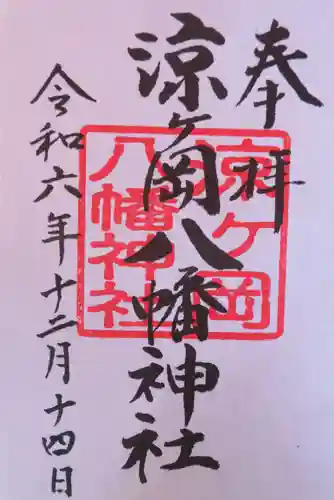 奉拝
涼ヶ岡八幡神社
令和六年十二月十四日
涼ケ岡
八幡神社